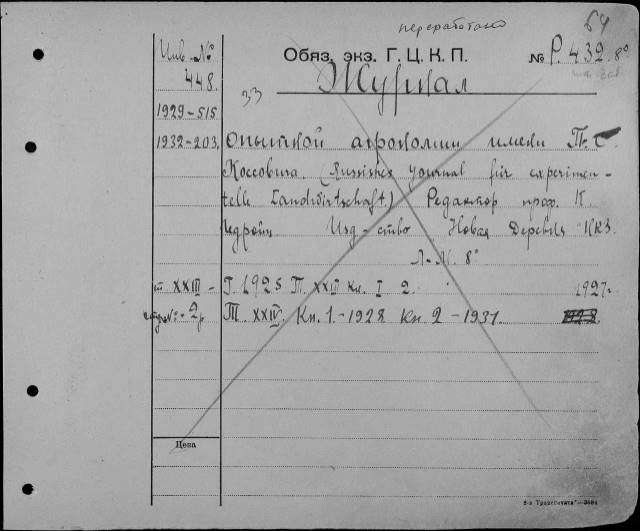 переработано
64
Инв. №
Обяз. экз. Г. Ц. К. П.
№ Р. 432. 8°
448.
33
Журнал
1929-515
1932-203.
опытной агрономии имени П. С.
Коссовича. (Russisches Journal für experimen-
telle Landwirtschaft) Редактор проф. К.
Гедройц Изд-ство Новая Деревня НКЗ
Л-М. 8°
т XXIII - Г. 1925 Т. XXIV Кн. I 2. 1927г.
№ 2 Т. XXIV. Кн. 1.-1928 Кн. 2 - 1931 1928
Цена